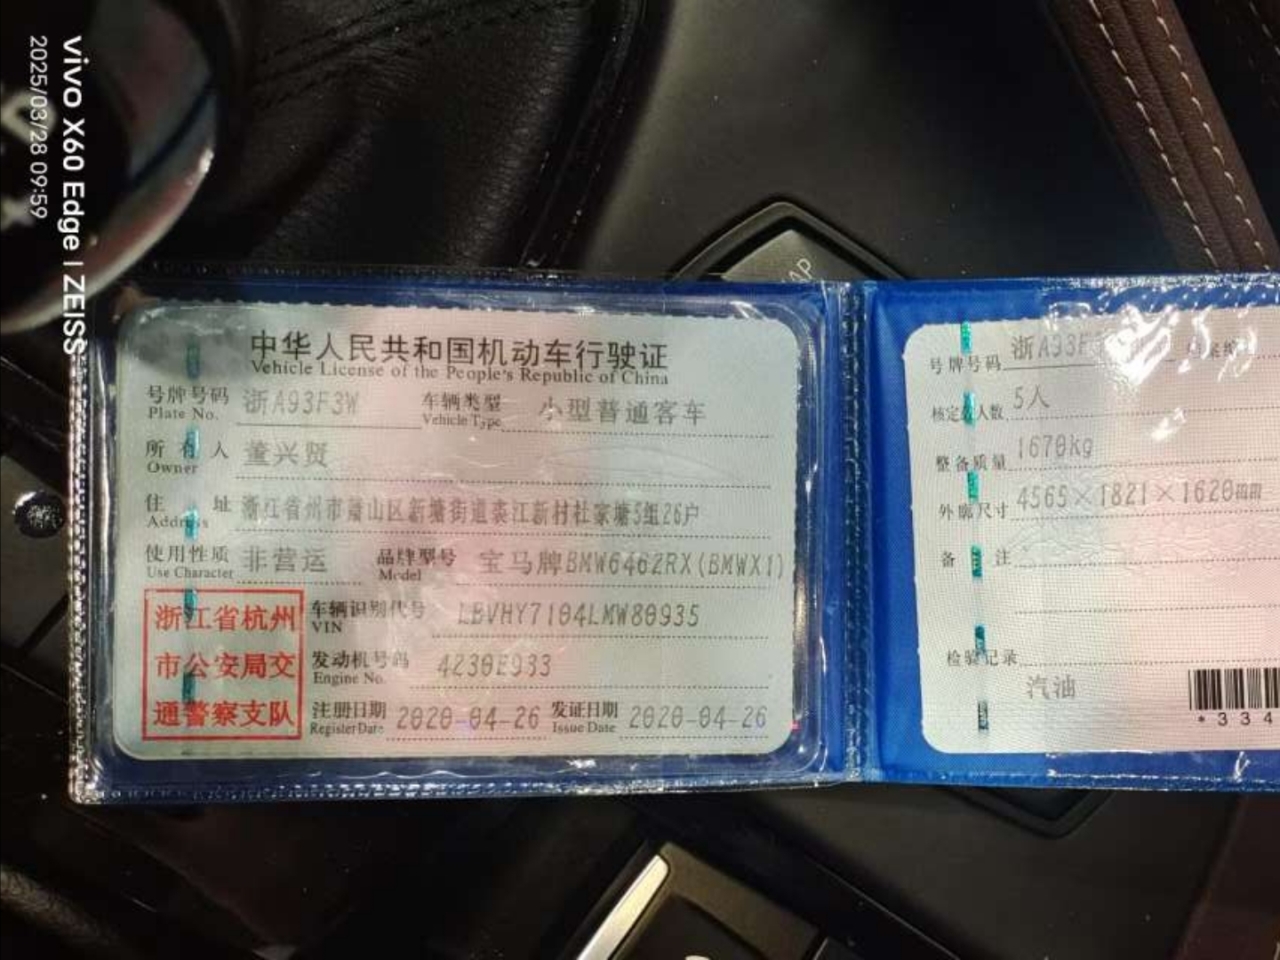 vivo X60 Edge | ZEISS
2025/03/28 09:59
中华人民共和国机动车行驶证
Vehicle License of the People's Republic of China
号牌号码 浙A93F3W 车辆类型 小型普通客车
Plate No. Vehicle Type
所有人 董兴贤
Owner
住址 浙江省州市萧山区新塘街道裘江新村杜家塘5组26户
Address
使用性质 非营运 品牌型号 宝马牌BMW6462RX(BMWX1)
Use Character Model
浙江省杭州
市公安局交
通警察支队
车辆识别代号 LBVHY7104LMW80935
VIN
发动机号码 4230E933
Engine No.
注册日期 2020-04-26 发证日期 2020-04-26
Register Date Issue Date
号牌号码 浙A93F
核定人数 5人
整备质量 1670Kg
外廓尺寸 4565×1821×1620mm
备注
检验记录
汽油
*334